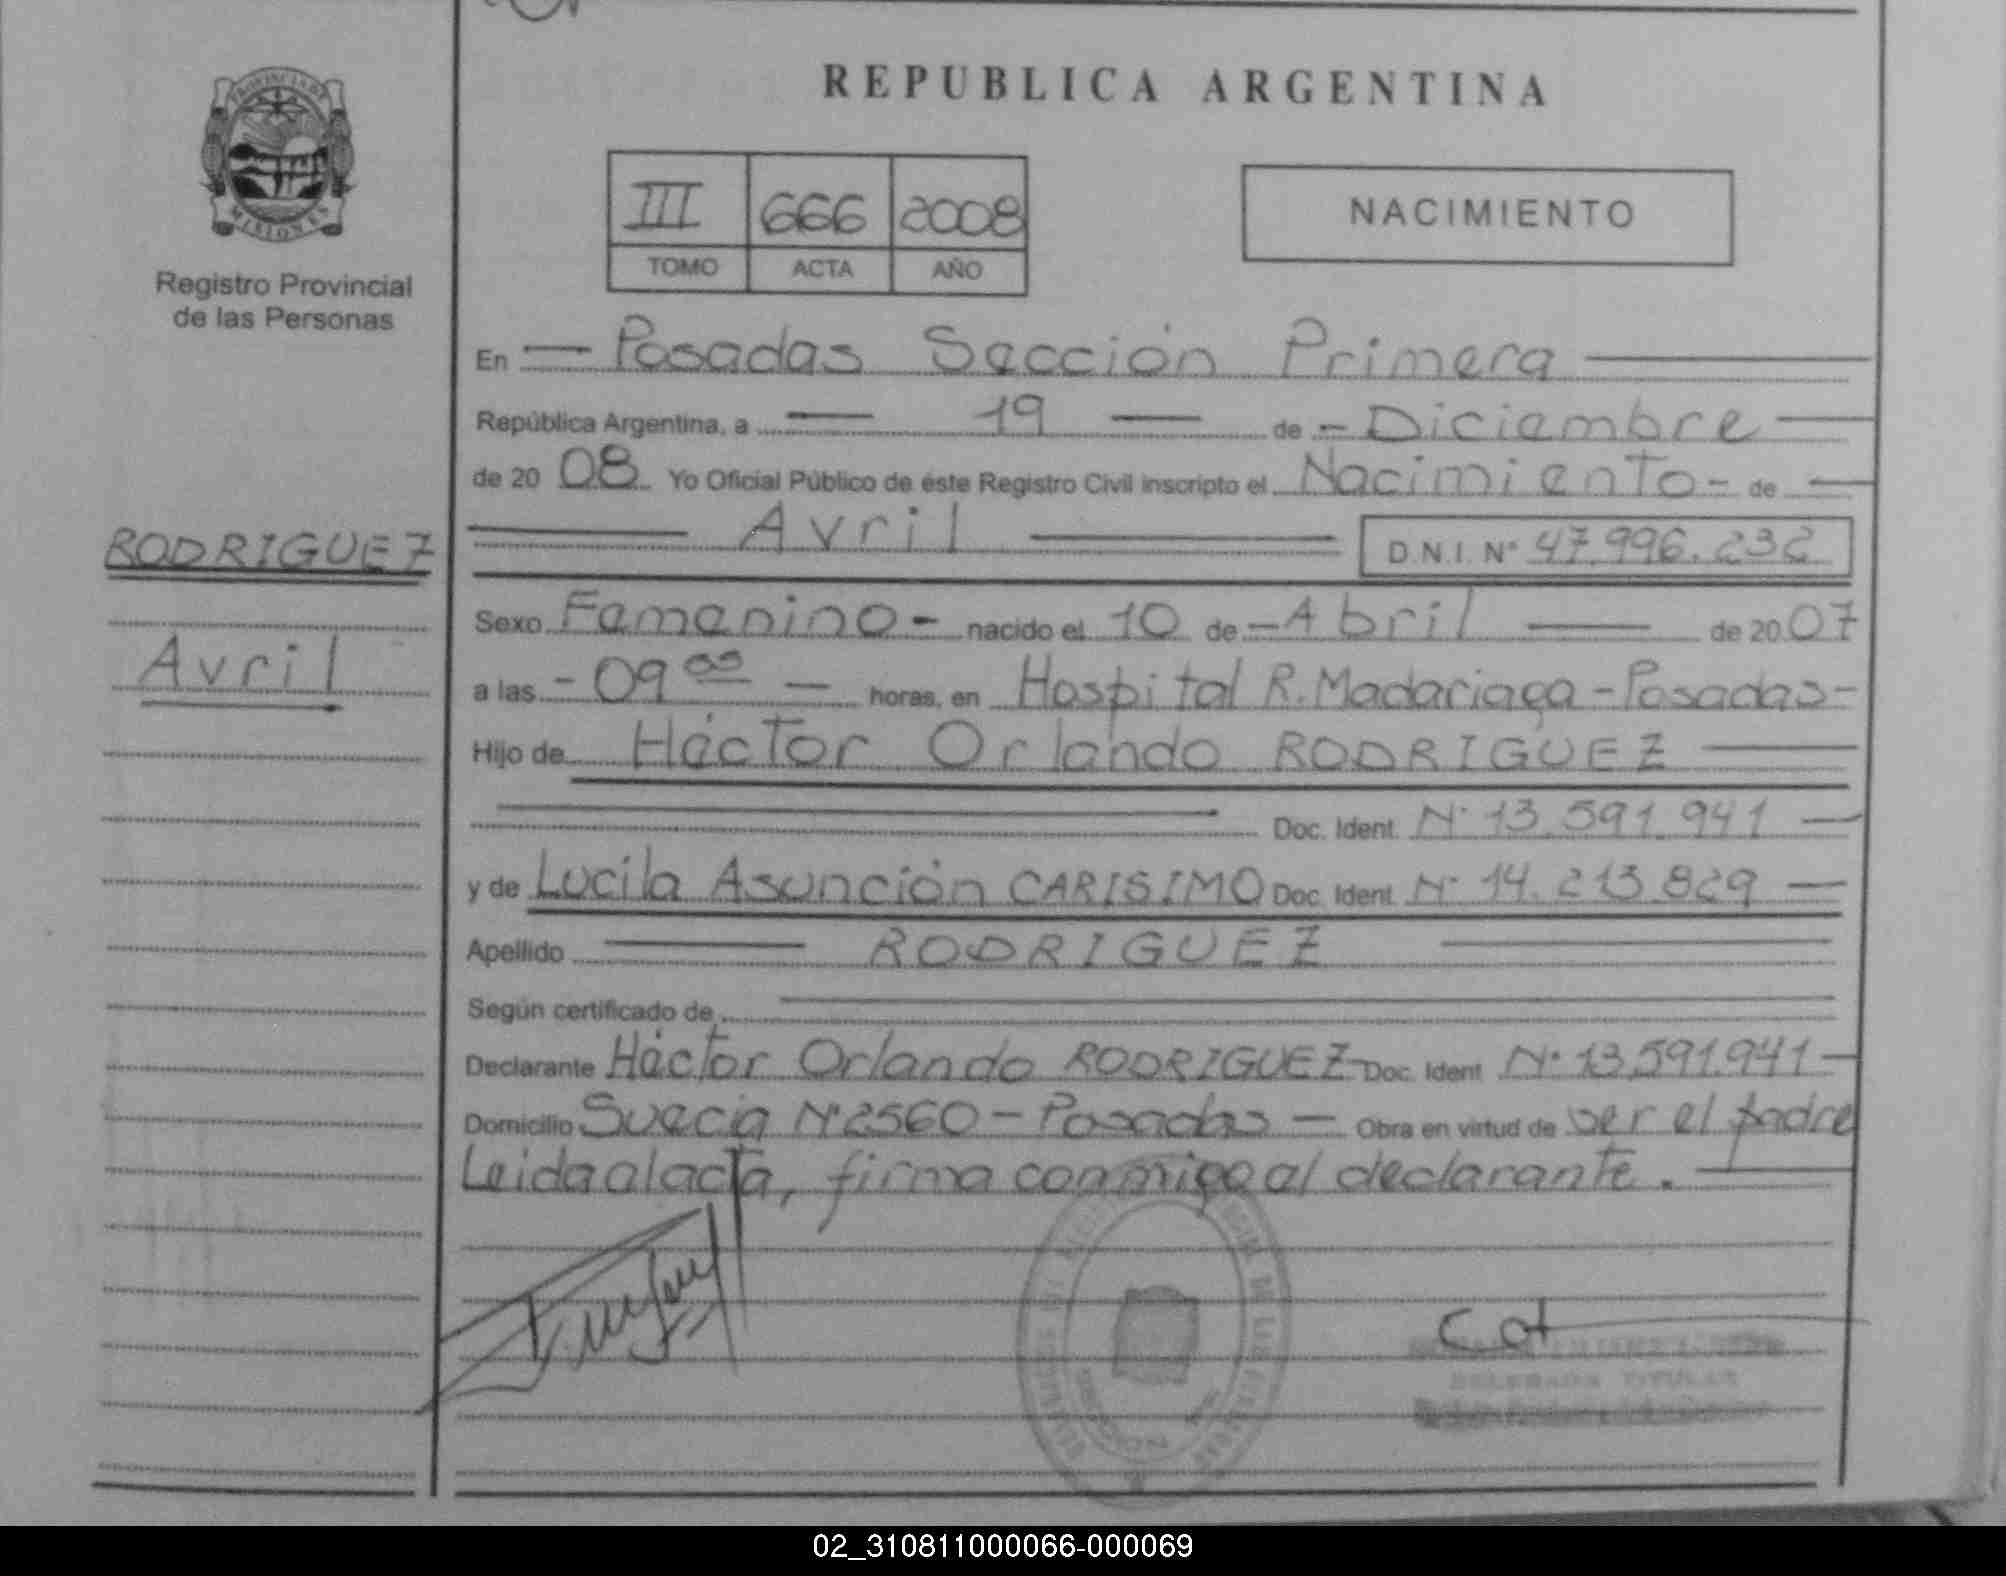 REPUBLICA ARGENTINA
PROVINCIA DE
MISIONES
Registro Provincial
de las Personas
III 666 2008
TOMO ACTA AÑO
NACIMIENTO
En Posadas Sección Primera
República Argentina, a 19 de Diciembre
de 20 08 Yo Oficial Público de éste Registro Civil inscripto el Nacimiento - de
Avril D.N.I. N° 47.996.232
RODRIGUEZ
Avril
Sexo Femenino - nacido el 10 de - Abril de 20 07
a las - 09 00 - horas, en Hospital R. Madariaga - Posadas -
Hijo de Héctor Orlando RODRIGUEZ
Doc. Ident. N° 13.591.941
y de Lucila Asunción CARISIMO Doc. Ident. N° 14.213.829
Apellido RODRIGUEZ
Según certificado de
Declarante Héctor Orlando RODRIGUEZ Doc. Ident. N° 13.591.941
Domicilio Suecia N° 2560 - Posadas - Obra en virtud de ser el padre
Leida el acta, firma conmigo el declarante.
DELEGADA TITULAR
02_310811000066-000069